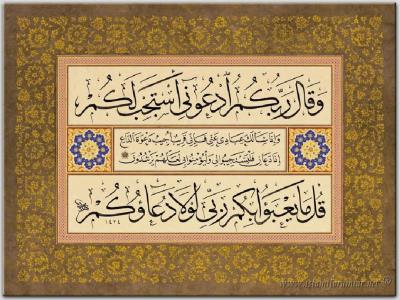 وَقَالَ رَبُّكُمُ ادْعُونِي أَسْتَجِبْ لَكُمْ
وَإِذَا سَأَلَكَ عِبَادِي عَنِّي فَإِنِّي قَرِيبٌ أُجِيبُ دَعْوَةَ الدَّاعِ
إِذَا دَعَانِ فَلْيَسْتَجِيبُوا لِي وَلْيُؤْمِنُوا بِي لَعَلَّهُمْ يَرْشُدُونَ
قُلْ مَا يَعْبَؤُا بِكُمْ رَبِّي لَوْلَا دُعَاؤُكُمْ
١٤٢٤